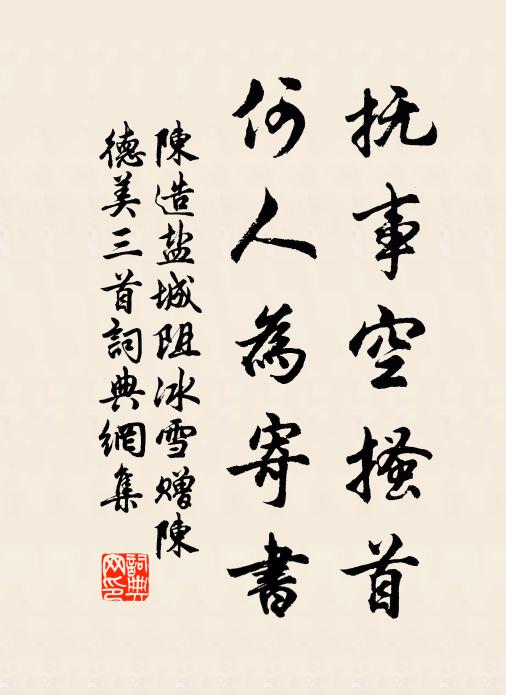 抚事空搔首
何人為寄書
陳造盐城阻冰雪赠陳
德美三首詞典網集
詞典
网印